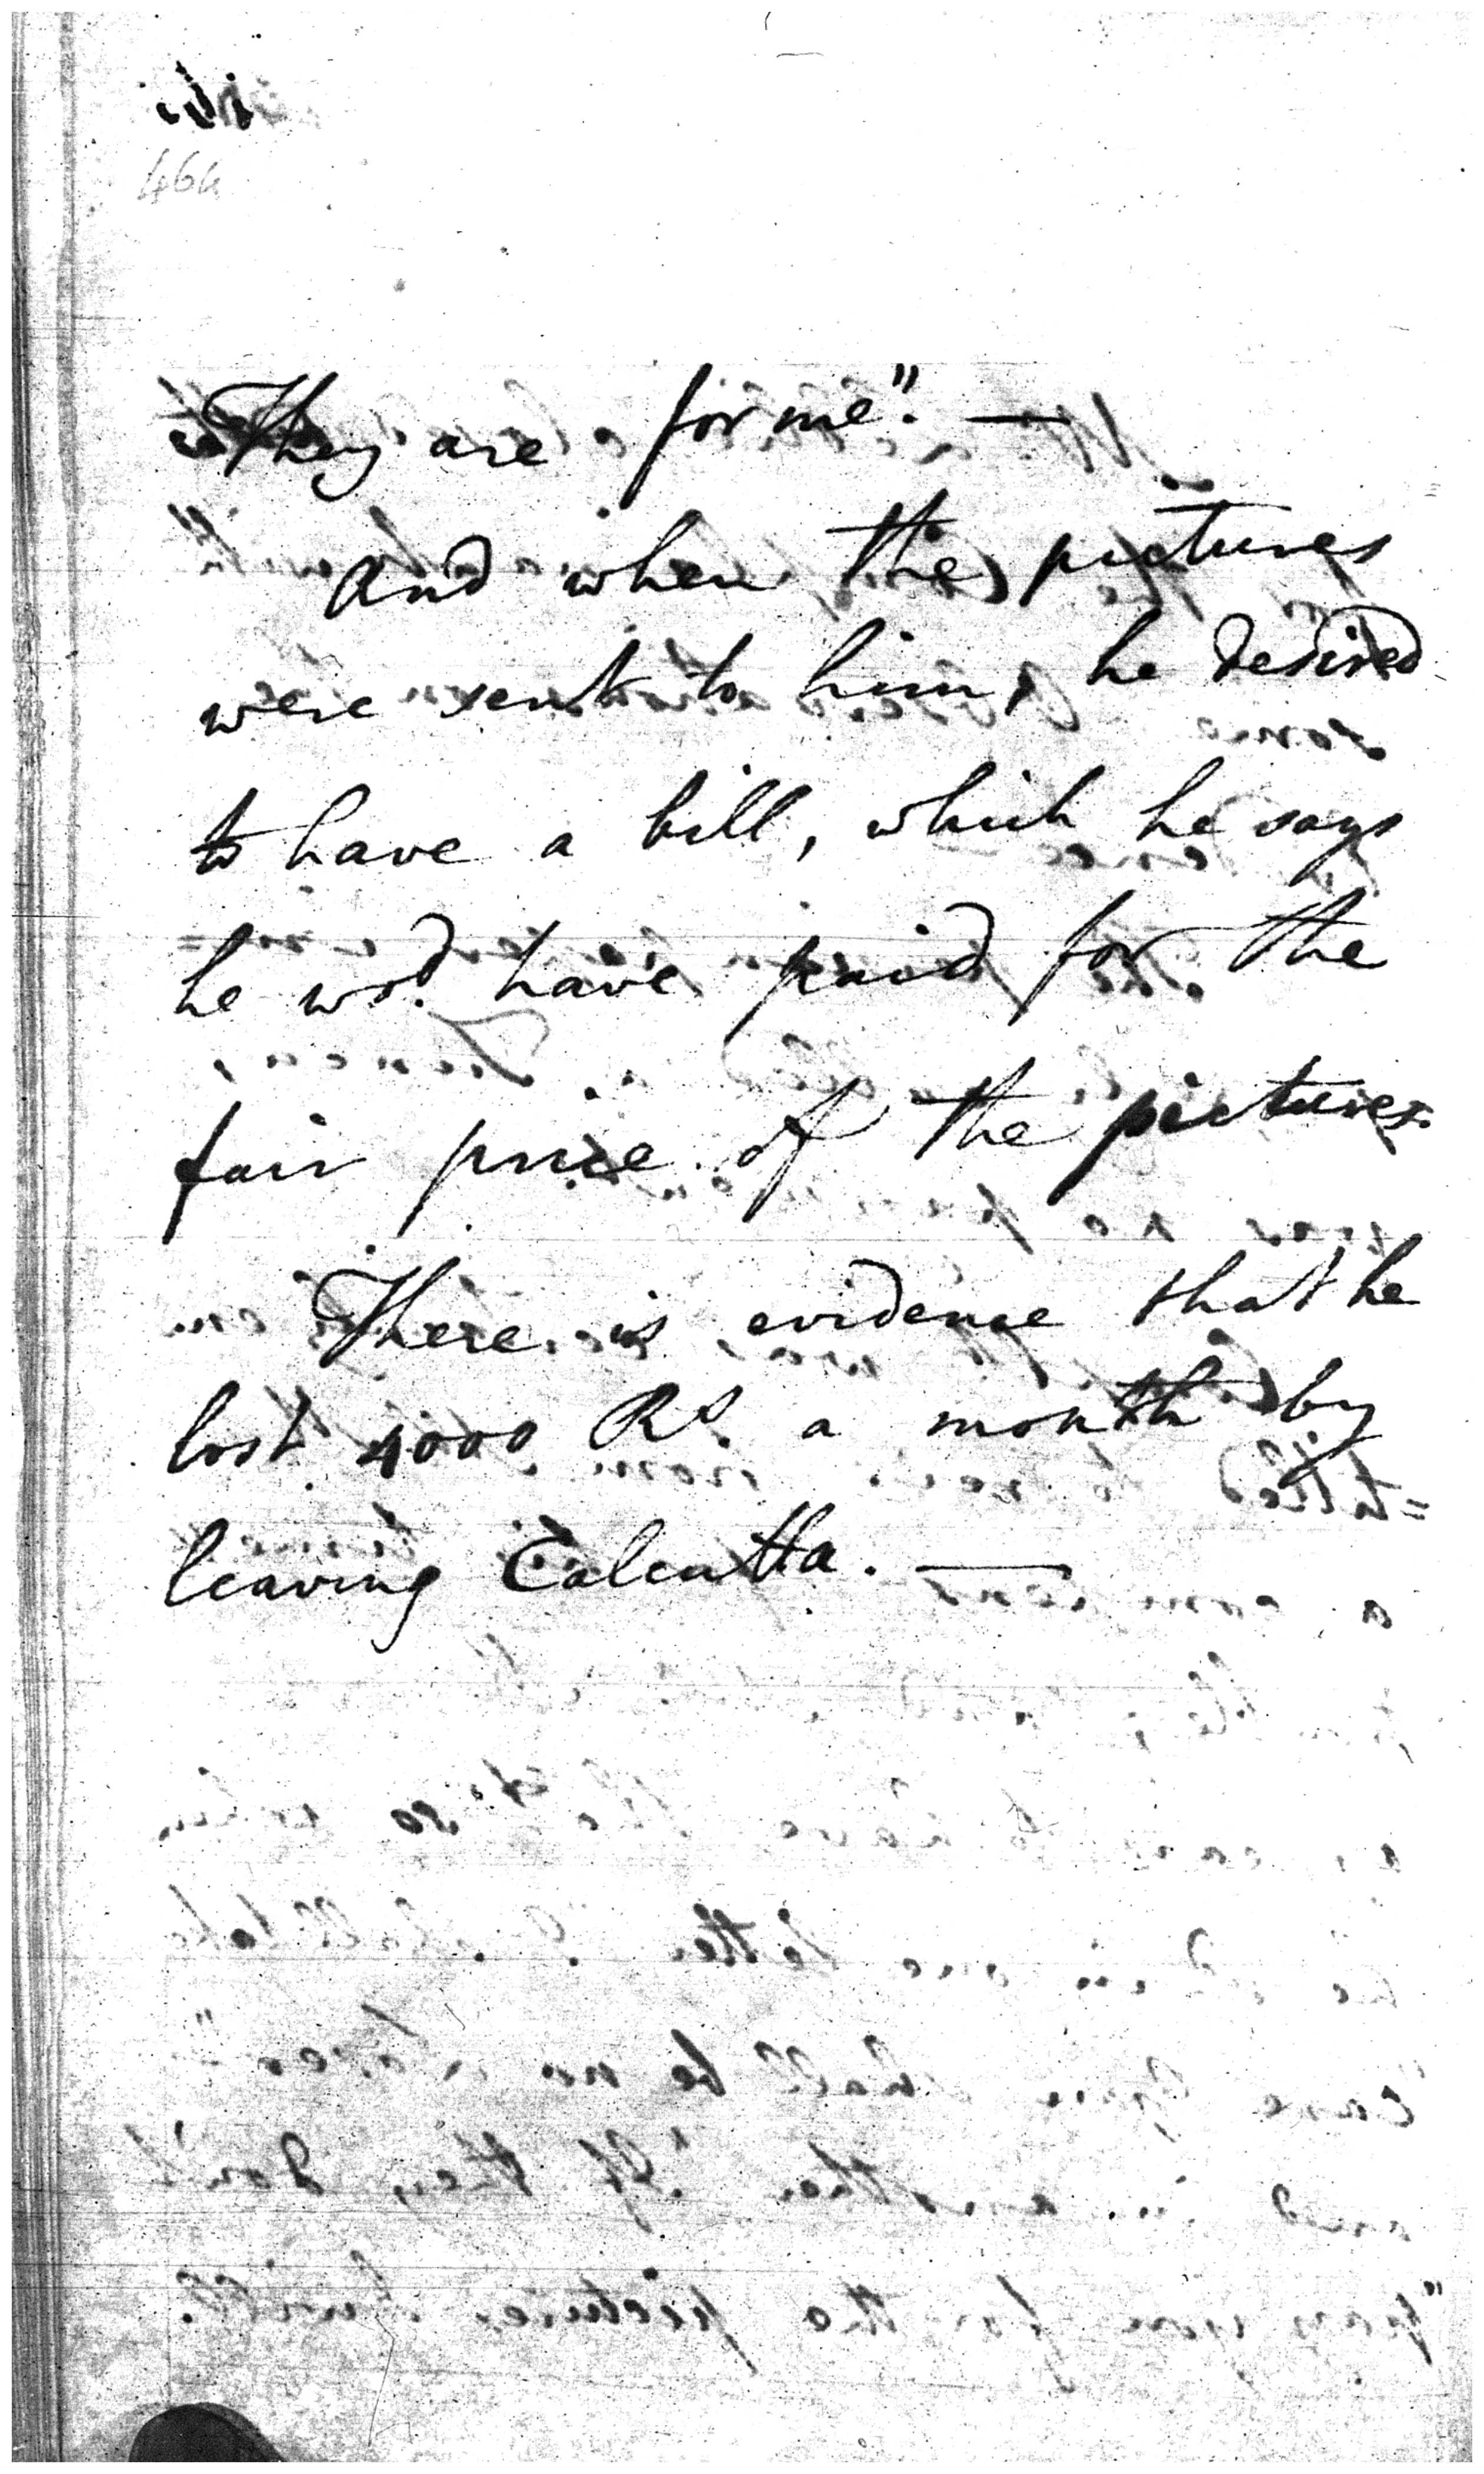 464
"They are for me". —
And when the pictures
were sent to him, he desired
to have a bill, which he says
he wod. have paid for the
fair price of the pictures.
There is evidence that he
lost 4000 Rs. a month by
leaving Calcutta. —